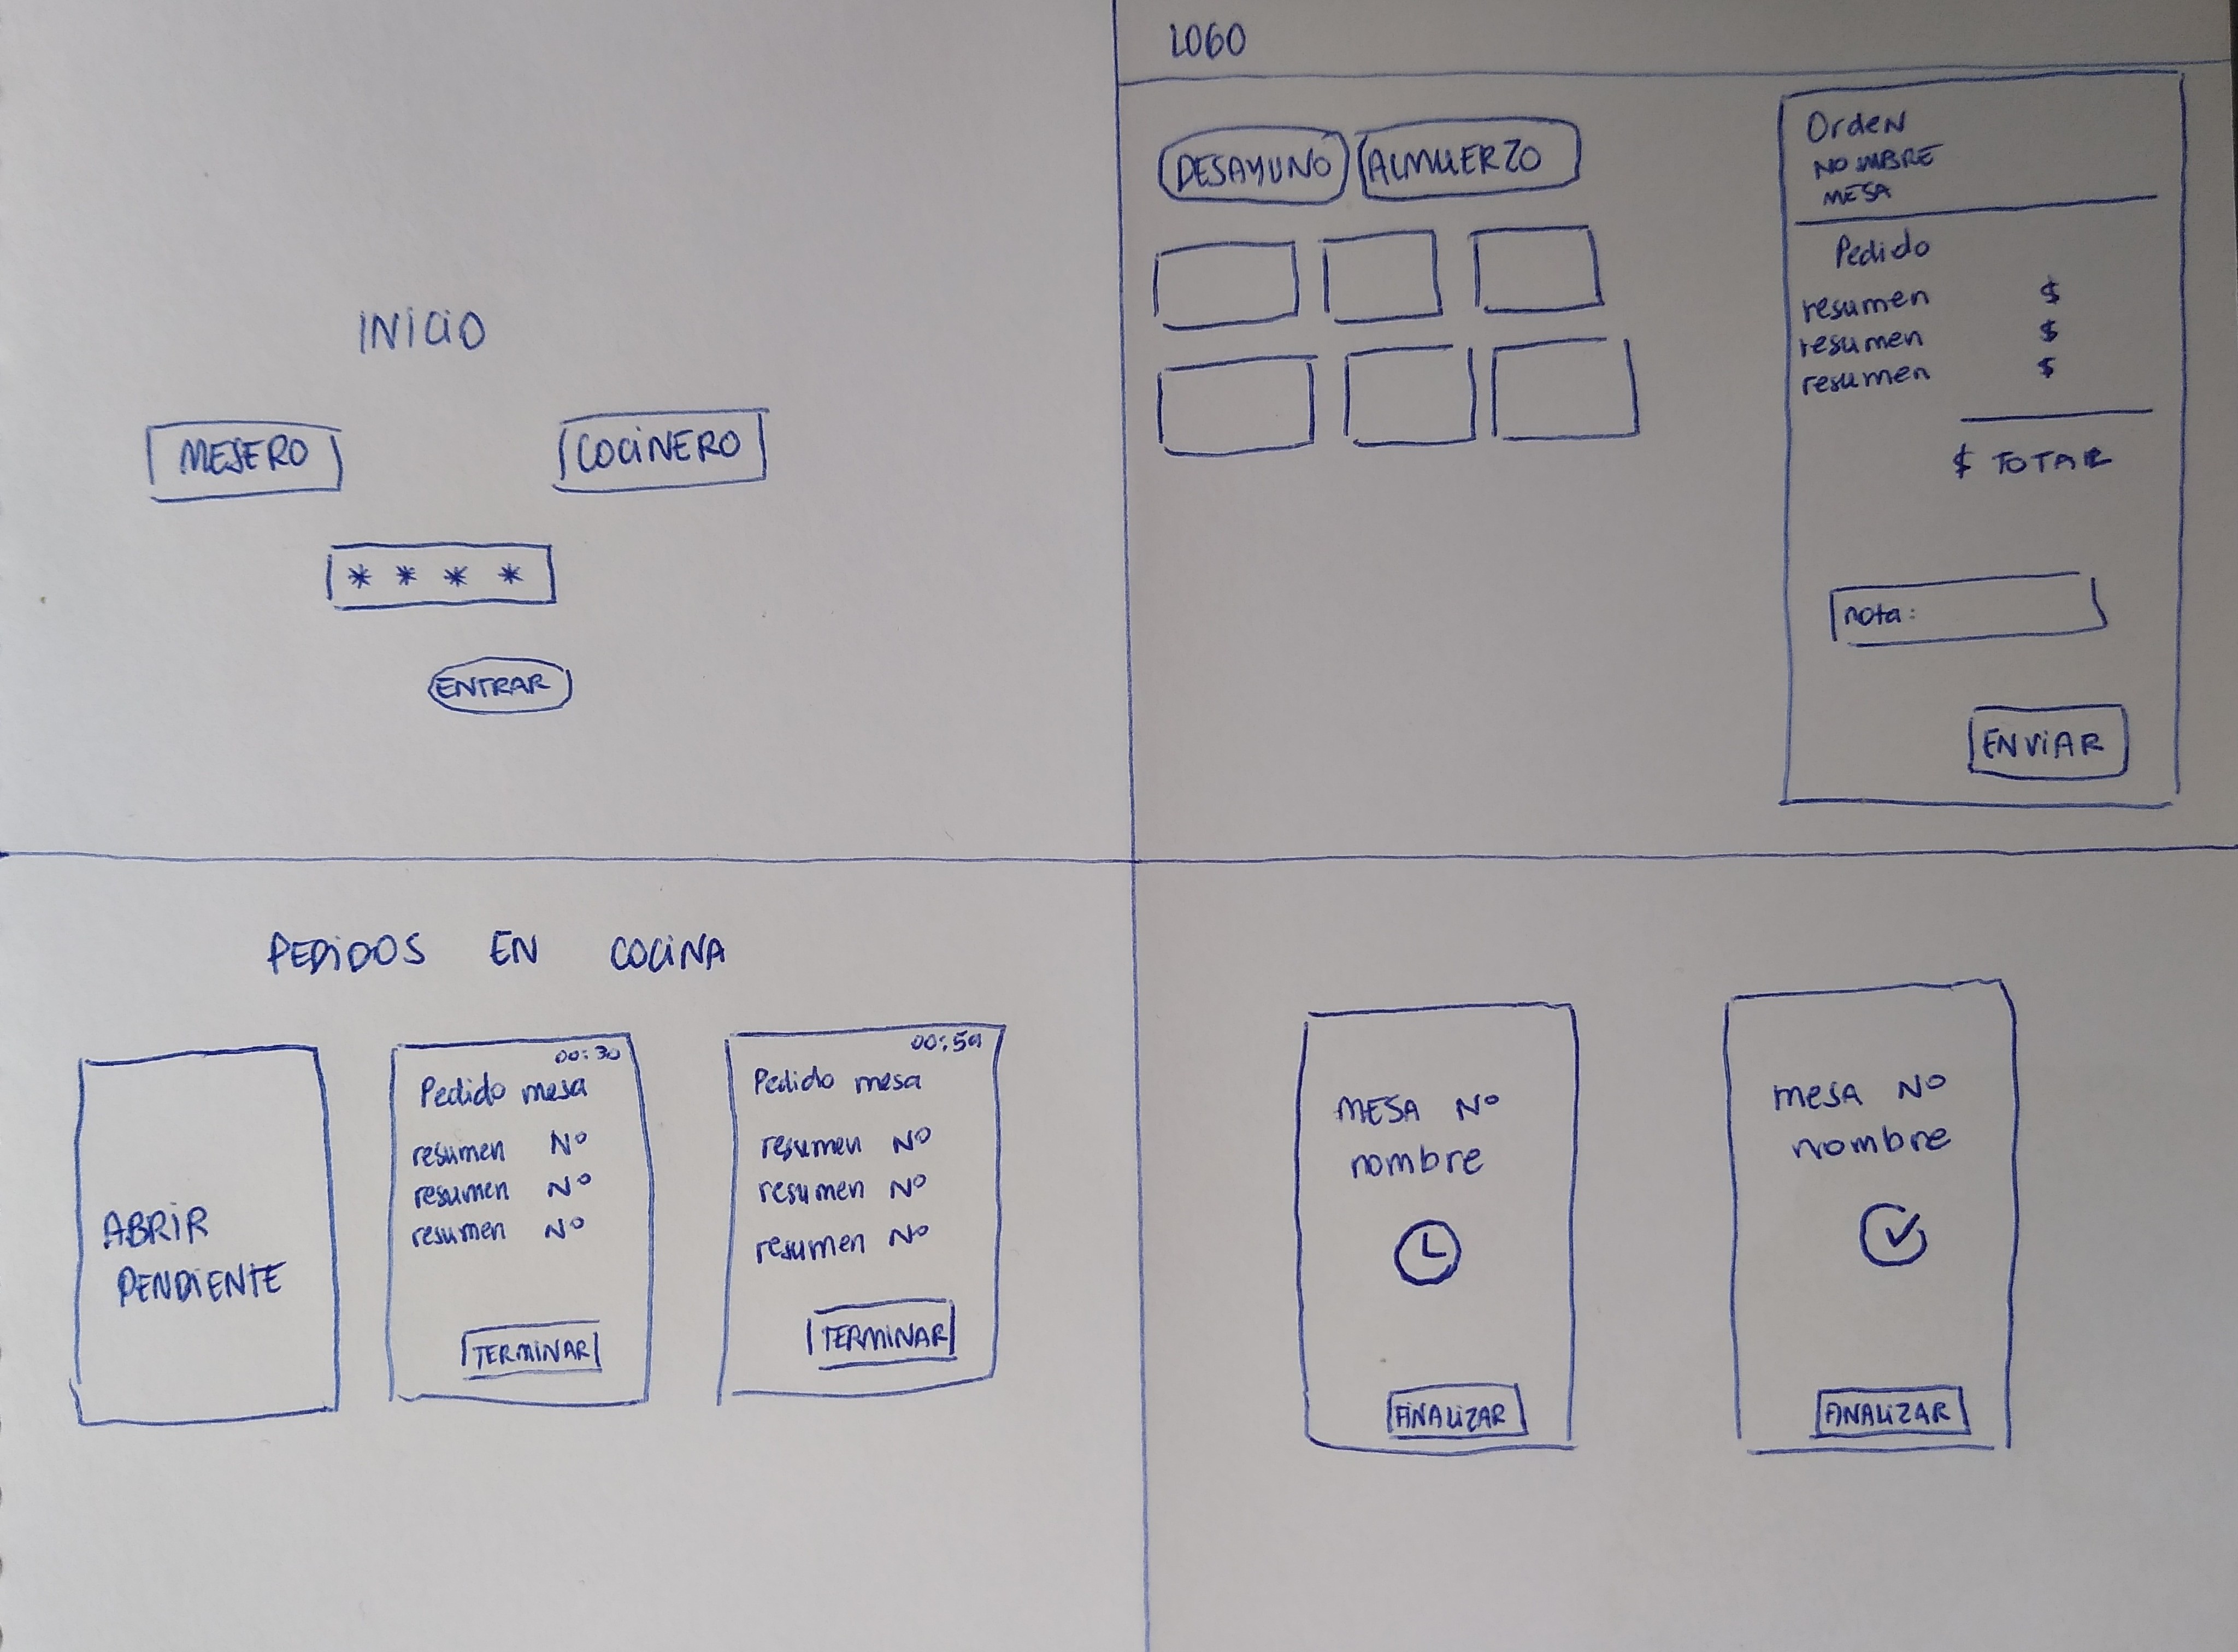 INICIO
MESERO
COCINERO
* * * *
ENTRAR
LOGO
DESAYUNO
ALMUERZO
Orden
NOMBRE
MESA
Pedido
resumen $
resumen $
resumen $
$ TOTAL
nota:
ENVIAR
PEDIDOS EN COCINA
ABRIR
PENDIENTE
00:30
Pedido mesa
resumen Nº
resumen Nº
resumen Nº
TERMINAR
00:59
Pedido mesa
resumen Nº
resumen Nº
resumen Nº
TERMINAR
MESA Nº
nombre
FINALIZAR
mesa Nº
nombre
FINALIZAR